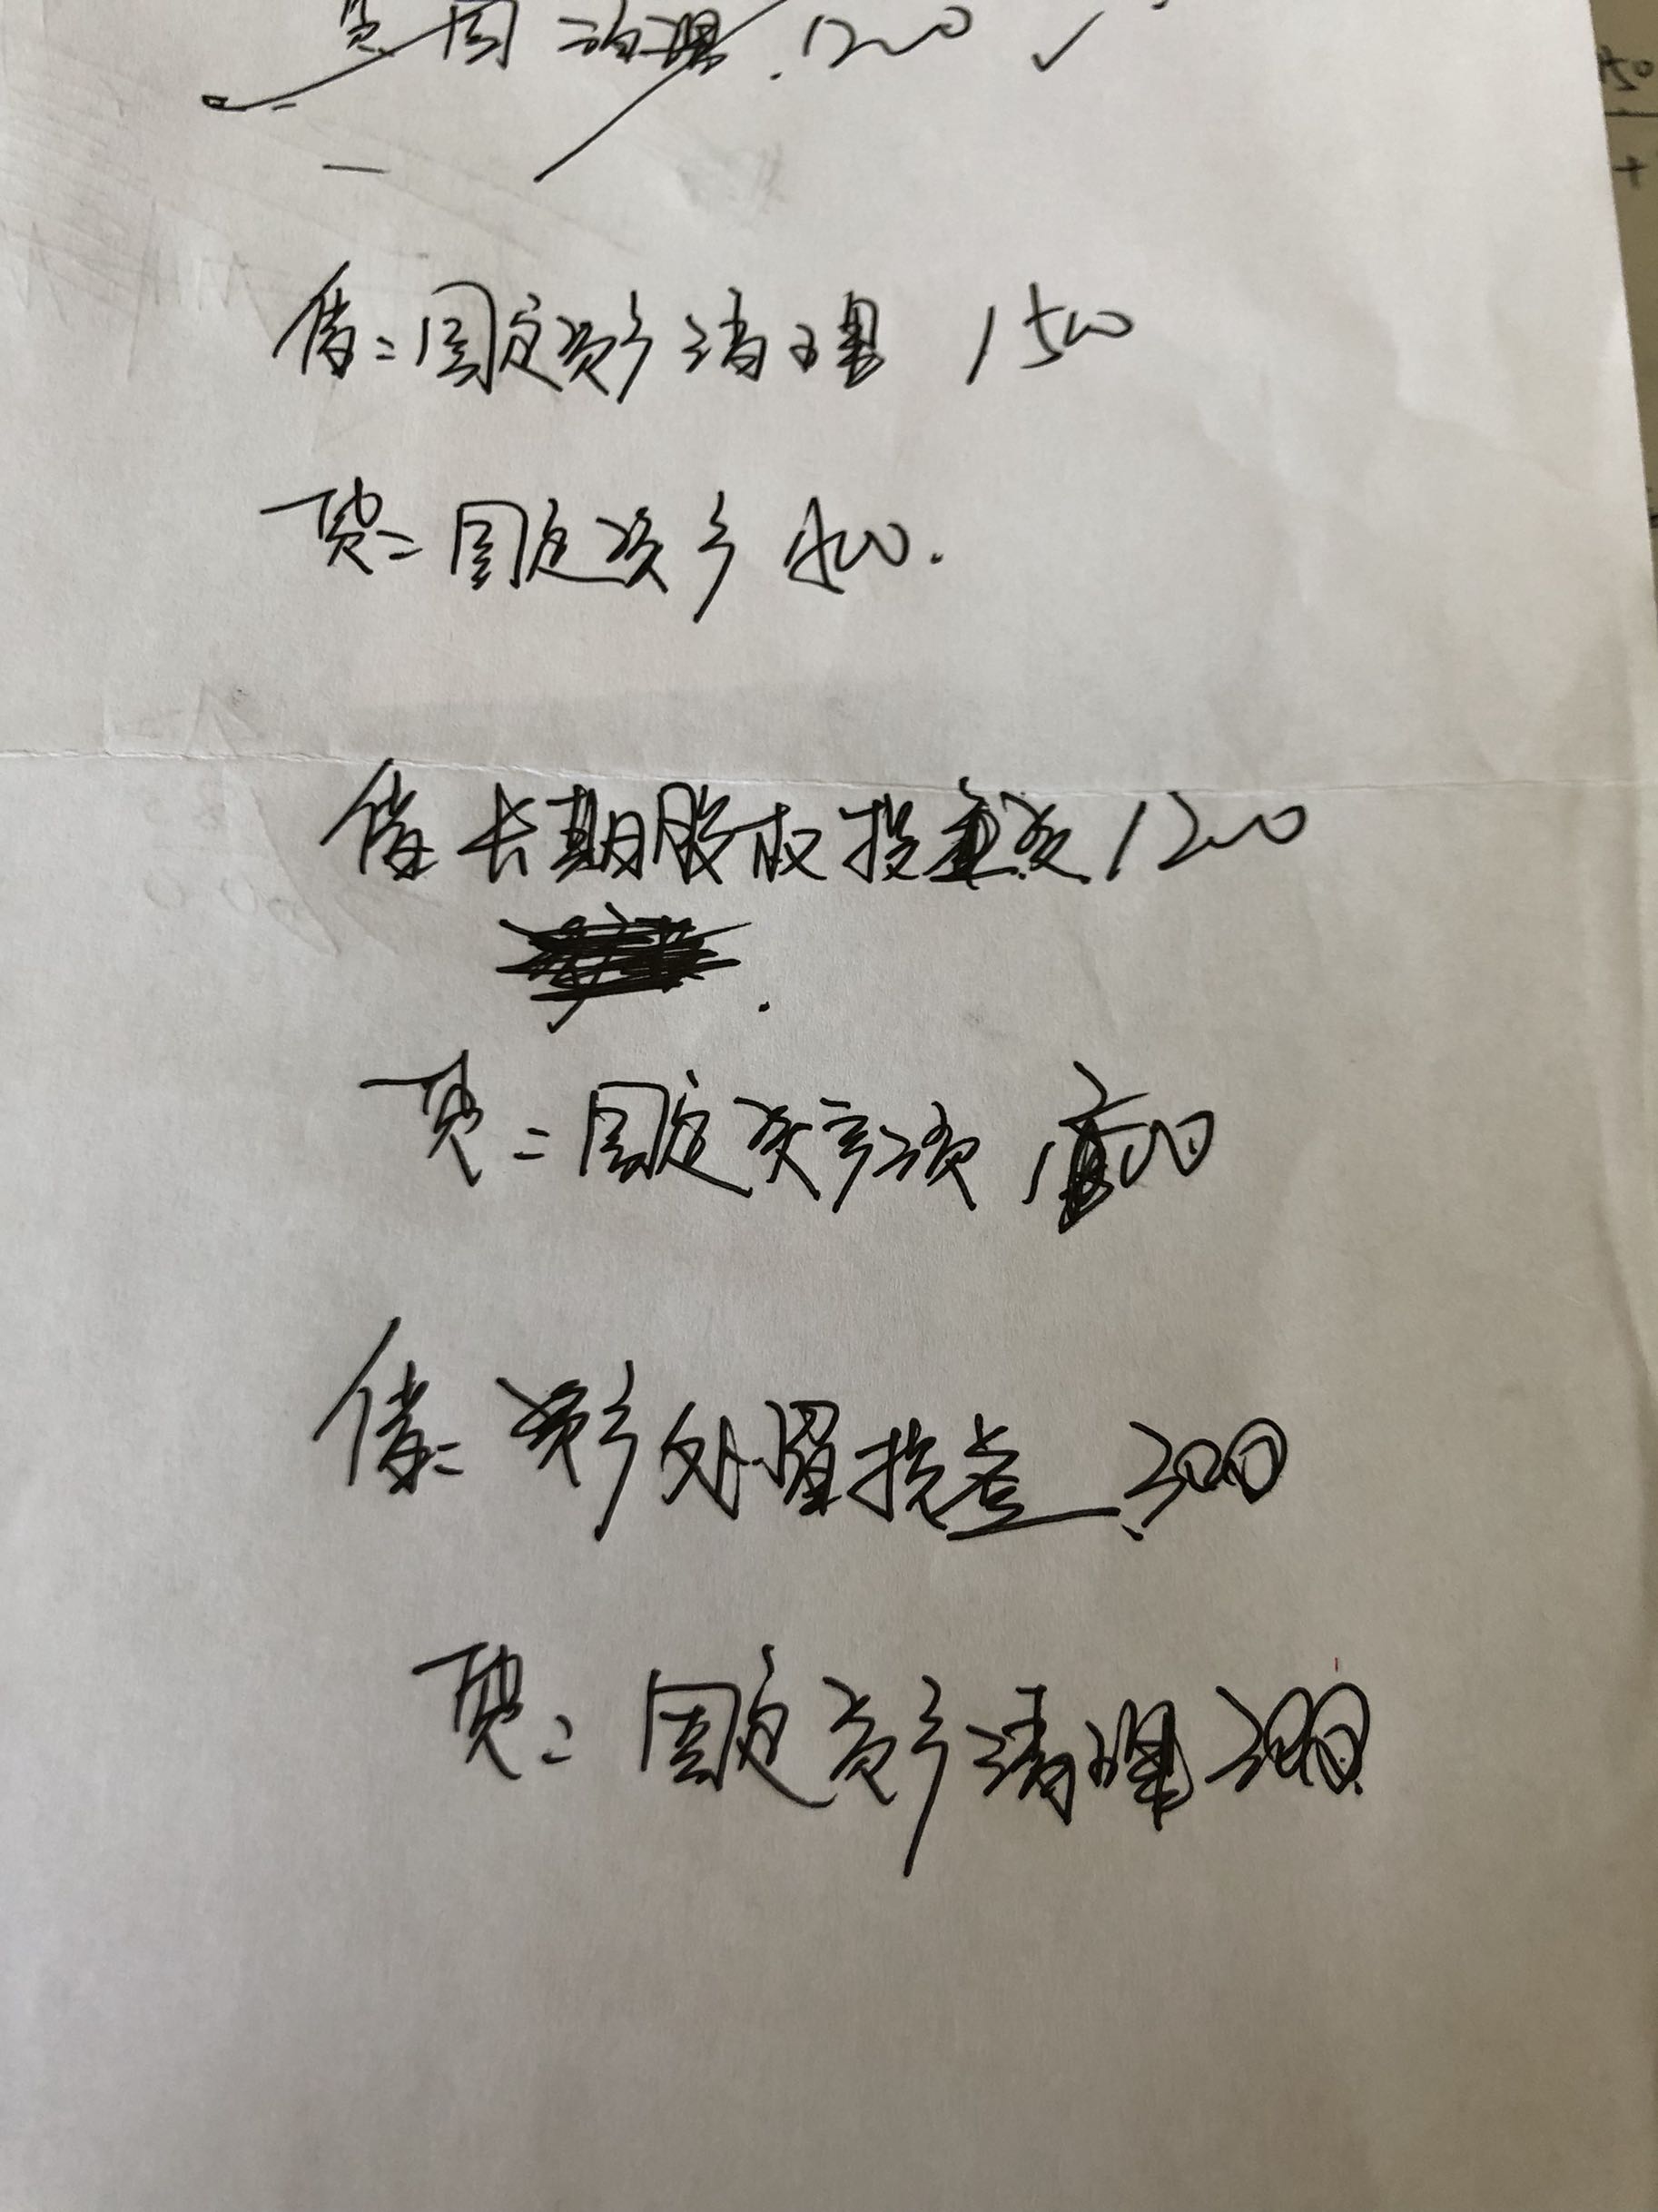 贷固清理.1200 ✓
借:固定资产清理 1500
贷:固定资产
借 长期股权投资 1200
贷:固定资产
借:资产处置损益 300
贷:固定资产清理 300